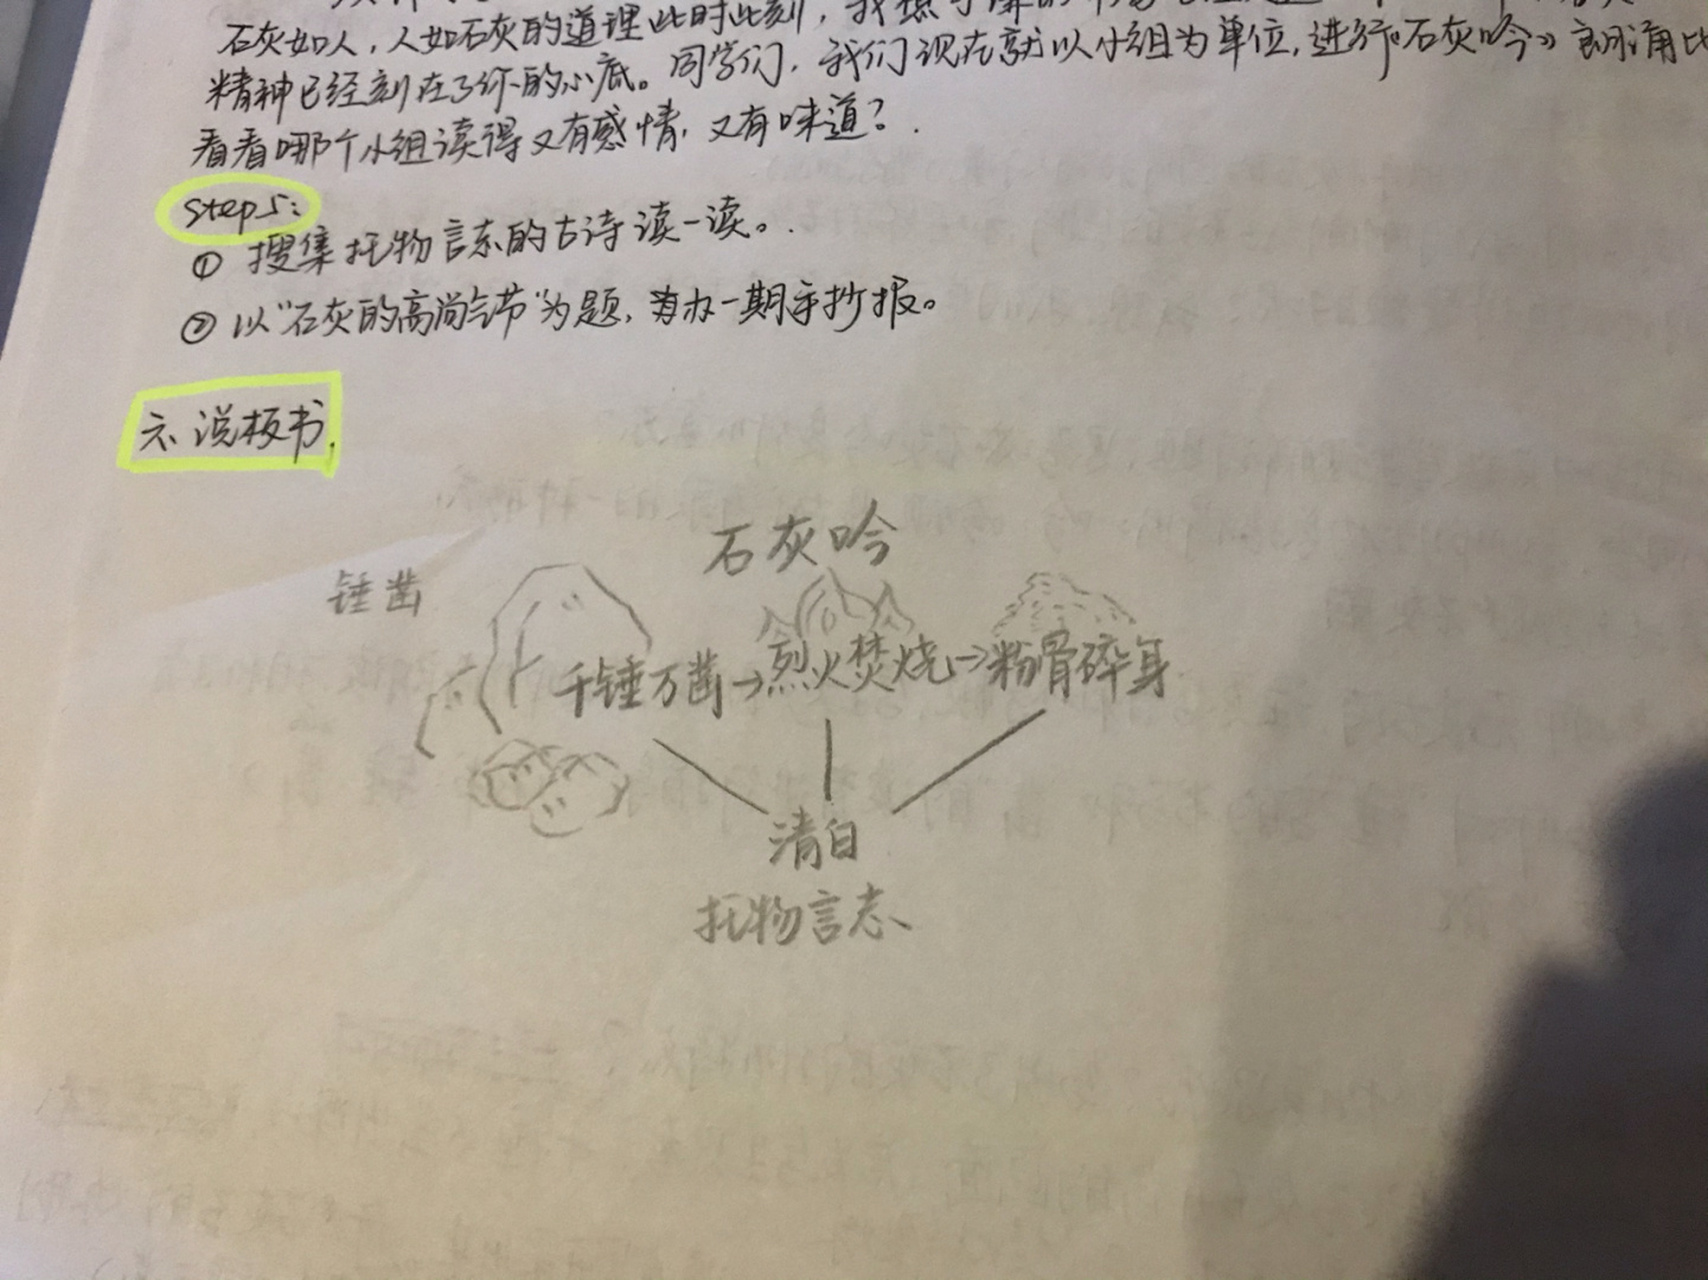 石灰如人，人如石灰的道理此时此刻，我想
精神已经刻在了你的心底。同学们，我们现在就以小组为单位，进行《石灰吟》朗诵比
看看哪个小组读得又有感情，又有味道？
step5：
① 搜集托物言志的古诗读一读。
② 以“石灰的高尚气节”为题，办一期手抄报。
六、说板书
石灰吟
锤凿
千锤万凿→烈火焚烧→粉骨碎身
清白
托物言志